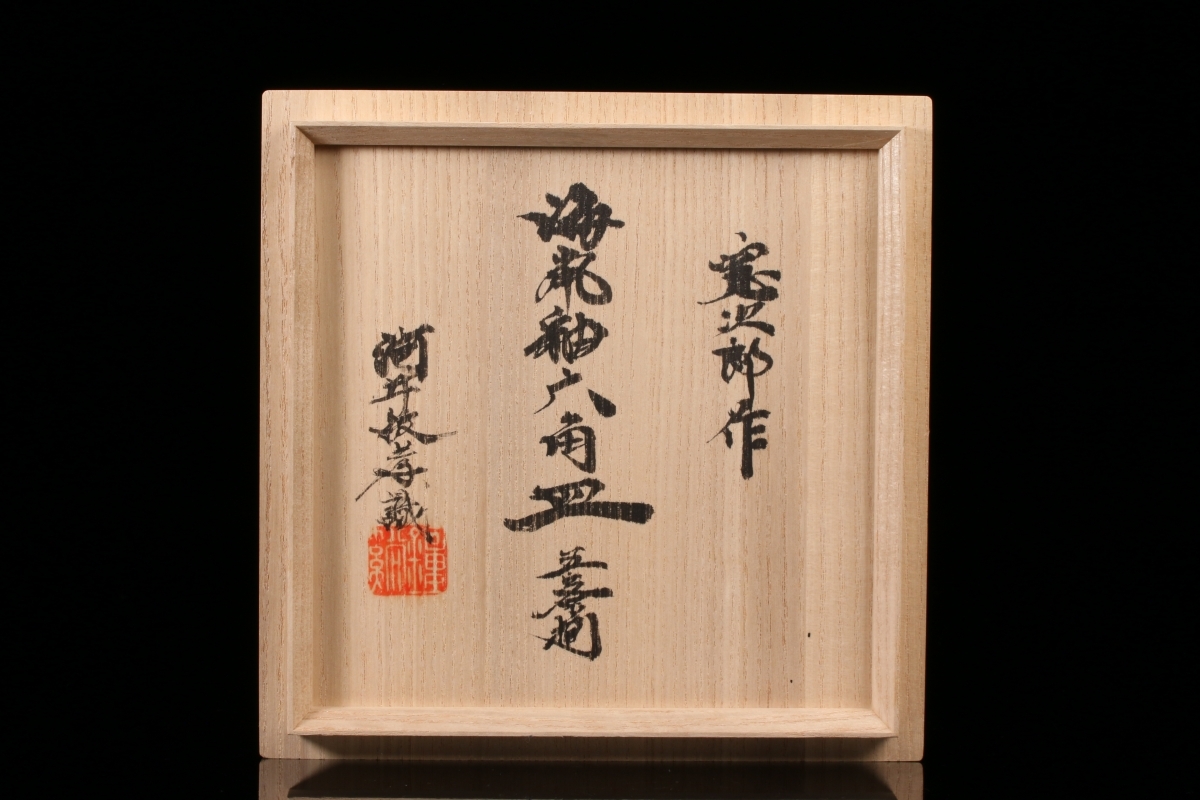 寛次郎作
海鼠釉六角皿 五客揃
河井敏孝識